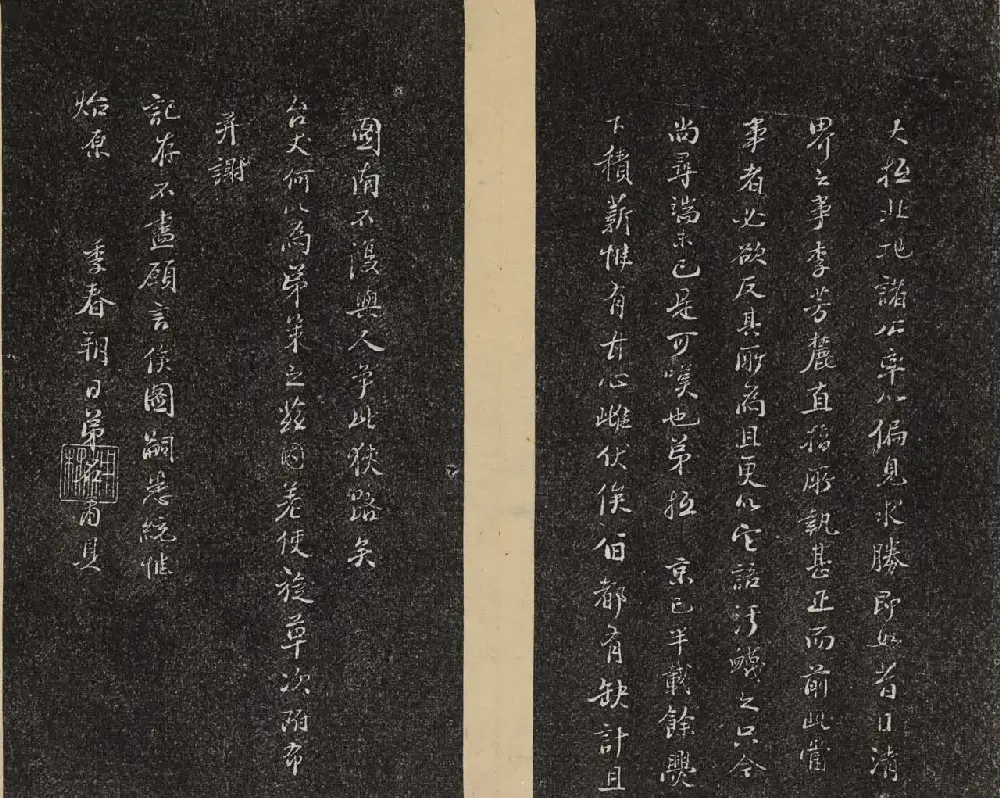 大抵北地諸公率以偏見求勝即如昔日清
界之事李芳麓直指所執甚正而前此當
事者必欲反其所為且更以它語污衊之只今
尚尋端未已是可嘆也弟抵 京已半載餘與
下積薪惟有甘心雌伏俟伯都有缺計且
圖南不復與人爭此狹路矣
台丈何以為弟策之茲因差使旋草次附布
并謝
記存不盡願言俟圖嗣悉統惟
炤原 季春朔日弟 肅具